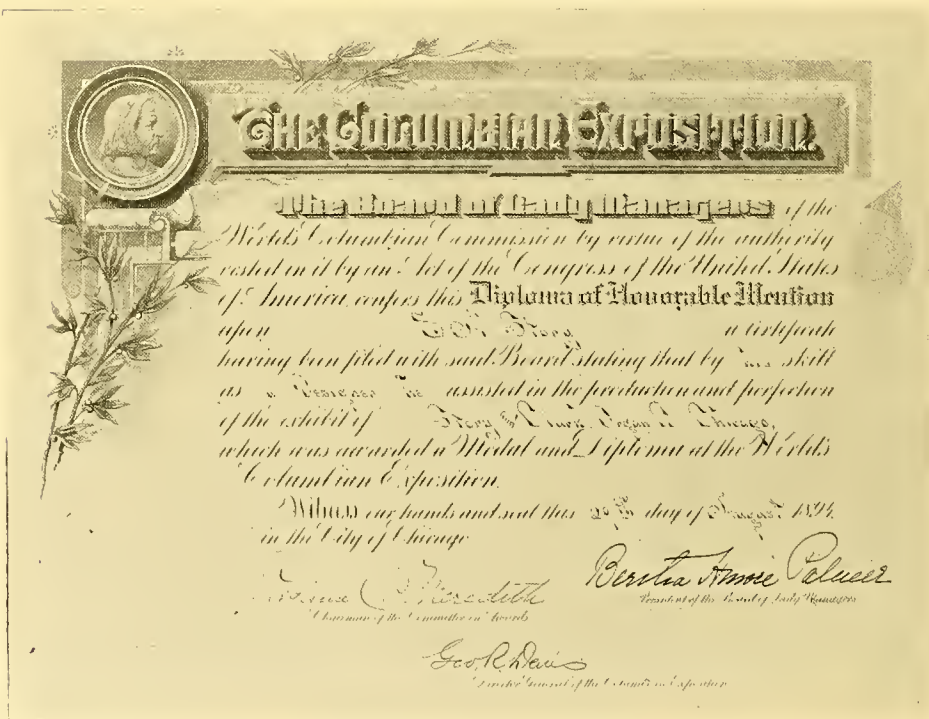 THE COLUMBIAN EXPOSITION.
The Board of Lady Managers of the
World's Columbian Commission by virtue of the authority
vested in it by an Act of the Congress of the United States
of America, confers this Diploma of Honorable Mention
upon Story a certificate
having been filed with said Board stating that by his skill
as a Designer he assisted in the production and perfection
of the exhibit of Story and Clark Organ Co Chicago,
which was awarded a Medal and Diploma at the World's
Columbian Exposition.
Witness our hands and seal this 20th day of August 1894.
in the City of Chicago
Meredith
Chairman of the Committee on Awards
Bertha Honoré Palmer
President of the Board of Lady Managers
Geo. R. Davis
Director General of the Columbian Exposition